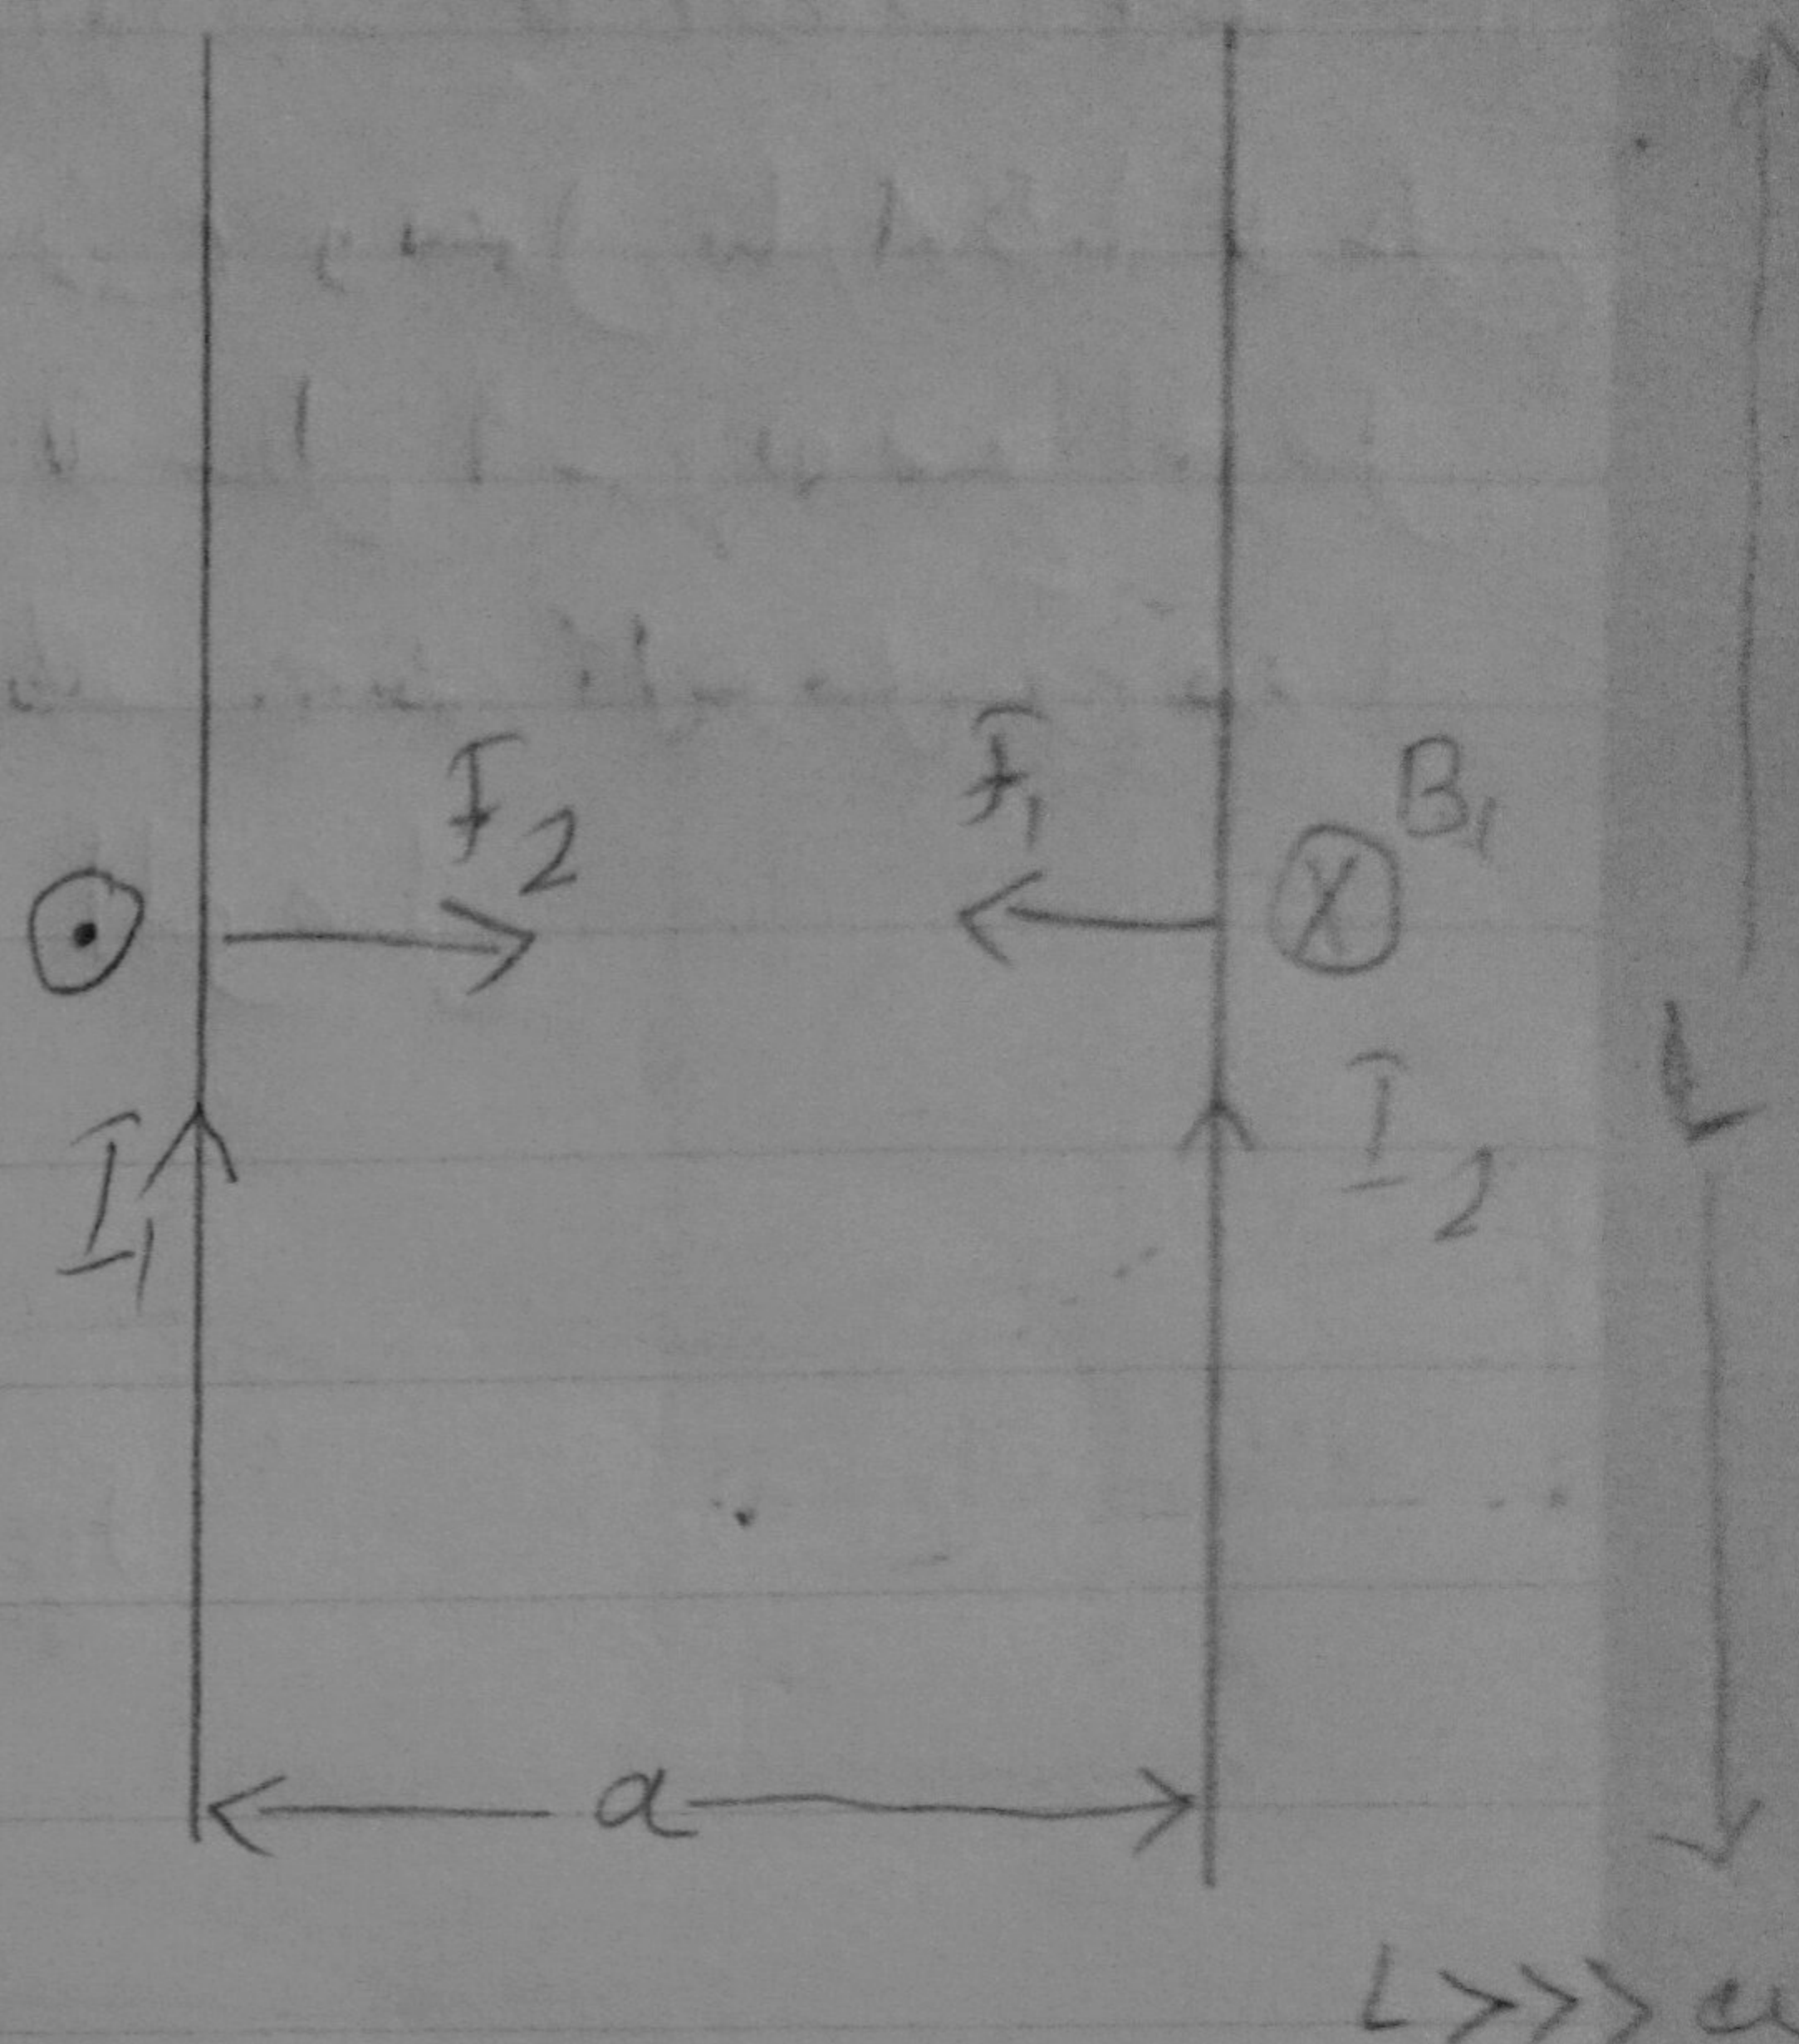 F₂ F₁ B₁
I₁ I₂ L
a
L >>> a